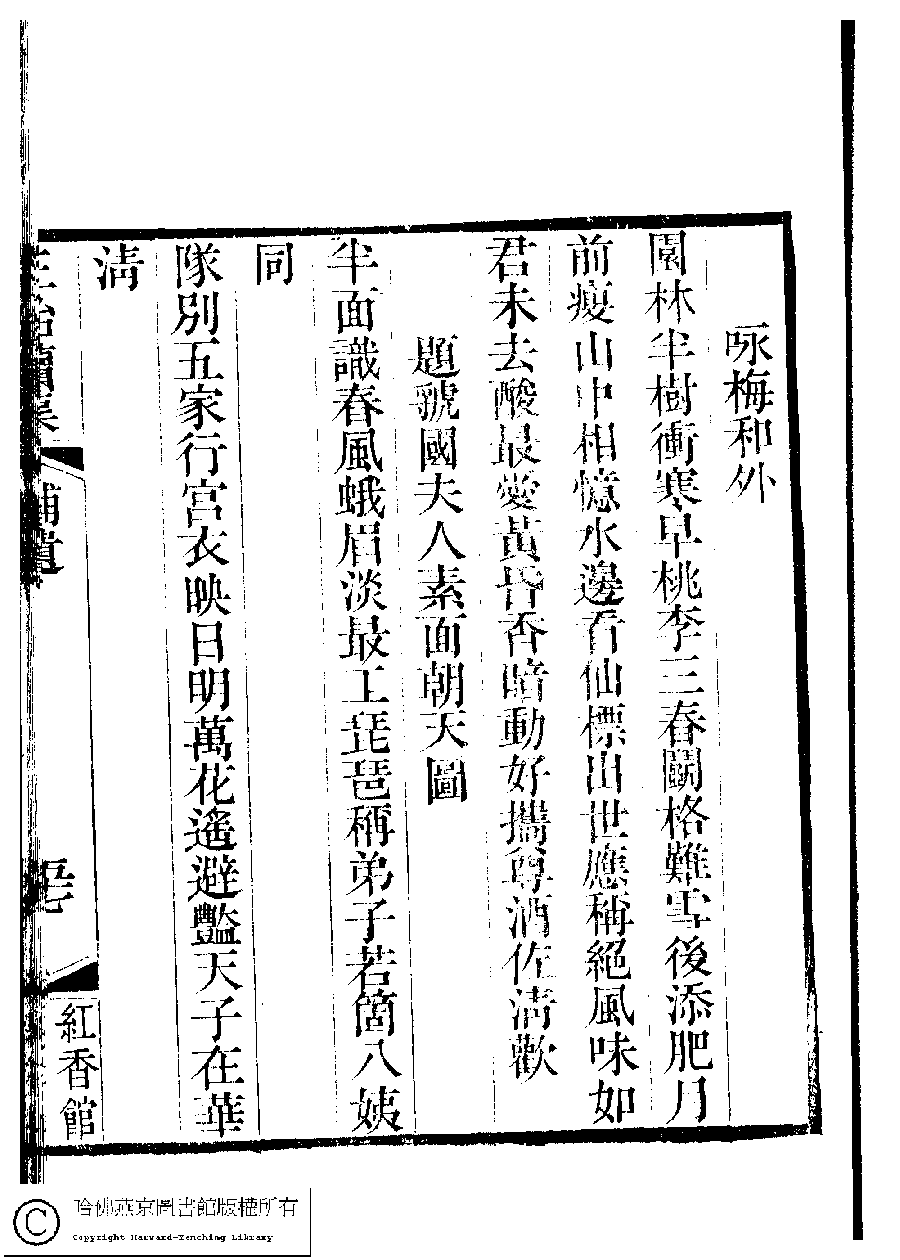 咏梅和外
園林半樹衝寒早桃李三春鬭格難雪後添肥月
前瘦山中相憶水邊看仙標出世應稱絕風味如
君未去酸最愛黃昏香暗動好攜尊酒佐淸歡
題虢國夫人素面朝天圖
半面識春風蛾眉淡最工琵琶稱弟子若箇八姨
同
隊別五家行宮衣映日明萬花遙避豔天子在華
淸
補遺
紅香館
哈佛燕京圖書館版權所有
Copyright Harvard-Yenching Library